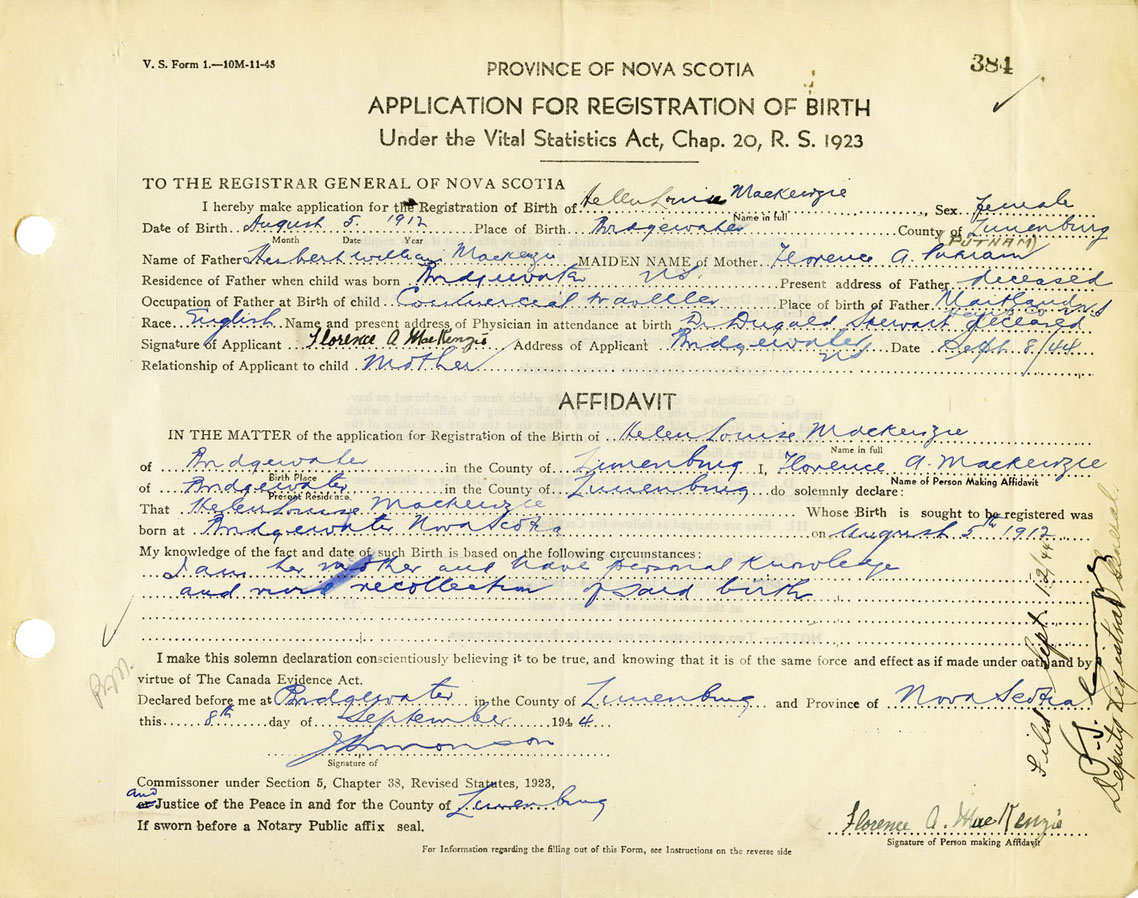 V. S. Form 1.—10M-11-43
384
PROVINCE OF NOVA SCOTIA
APPLICATION FOR REGISTRATION OF BIRTH
Under the Vital Statistics Act, Chap. 20, R. S. 1923
TO THE REGISTRAR GENERAL OF NOVA SCOTIA
I hereby make application for the Registration of Birth of Hellen Louise MacKenzie, Sex Female
Name in full
Date of Birth August 5 1912 Place of Birth Bridgewater County of Lunenburg
Month Date Year
(PUTNAM)
Name of Father Herbert William MacKenzie MAIDEN NAME of Mother Florence A. Putnam
Residence of Father when child was born Bridgewater N.S. Present address of Father deceased
Occupation of Father at Birth of child Commercial traveller Place of birth of Father Maitland
Hants Co. N.S
Race English Name and present address of Physician in attendance at birth Dr Dugald Stewart deceased
Signature of Applicant Florence A MacKenzie Address of Applicant Bridgewater NS Date Sept. 8/44
Relationship of Applicant to child Mother
AFFIDAVIT
IN THE MATTER of the application for Registration of the Birth of Helen Louise MacKenzie
Name in full
of Bridgewater in the County of Lunenburg I, Florence A. MacKenzie
Birth Place Name of Person Making Affidavit
of Bridgewater in the County of Lunenburg do solemnly declare:
Present Residence
That Helen Louise MacKenzie Whose Birth is sought to be registered was
born at Bridgewater Nova Scotia on August 5th 1912
My knowledge of the fact and date of such Birth is based on the following circumstances:
I am her mother and have personal knowledge
and recollection of said birth
I make this solemn declaration conscientiously believing it to be true, and knowing that it is of the same force and effect as if made under oath and by
virtue of The Canada Evidence Act.
Declared before me at Bridgewater in the County of Lunenburg and Province of Nova Scotia
this 8th day of September 1944
Signature of
Commissoner under Section 5, Chapter 38, Revised Statutes, 1923,
and
or Justice of the Peace in and for the County of Lunenburg
If sworn before a Notary Public affix seal.
Florence A. MacKenzie
Signature of Person making Affidavit
For Information regarding the filling out of this Form, see Instructions on the reverse side
Filed Sept. 12/44
Deputy Registrar General